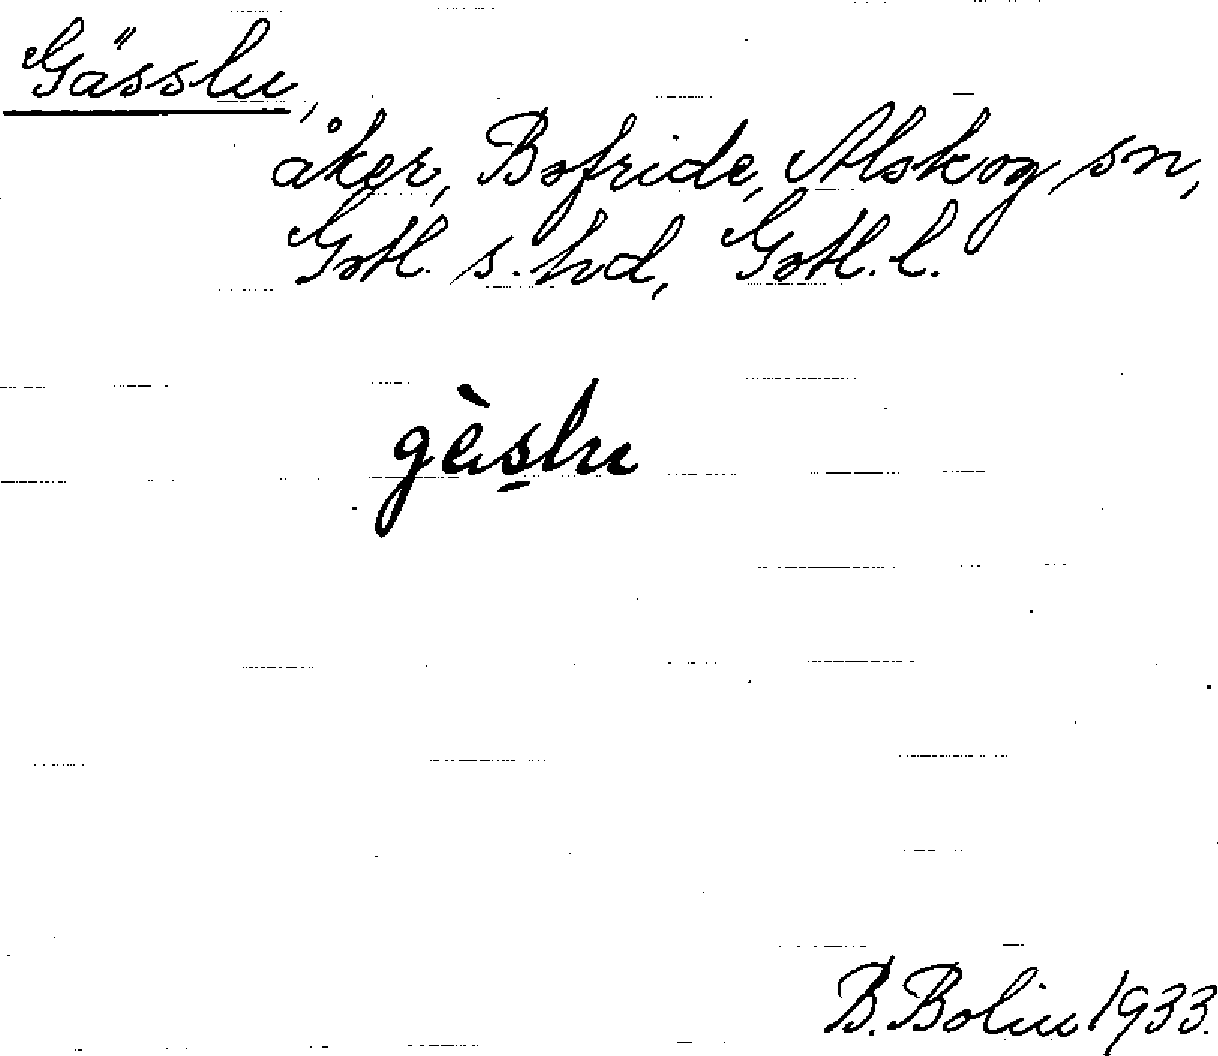 Gässlu,
åker, Bofride, Alskog sn,
Gotl. s. hd, Gotl. l.
gès̱lu
B. Bolin 1933.